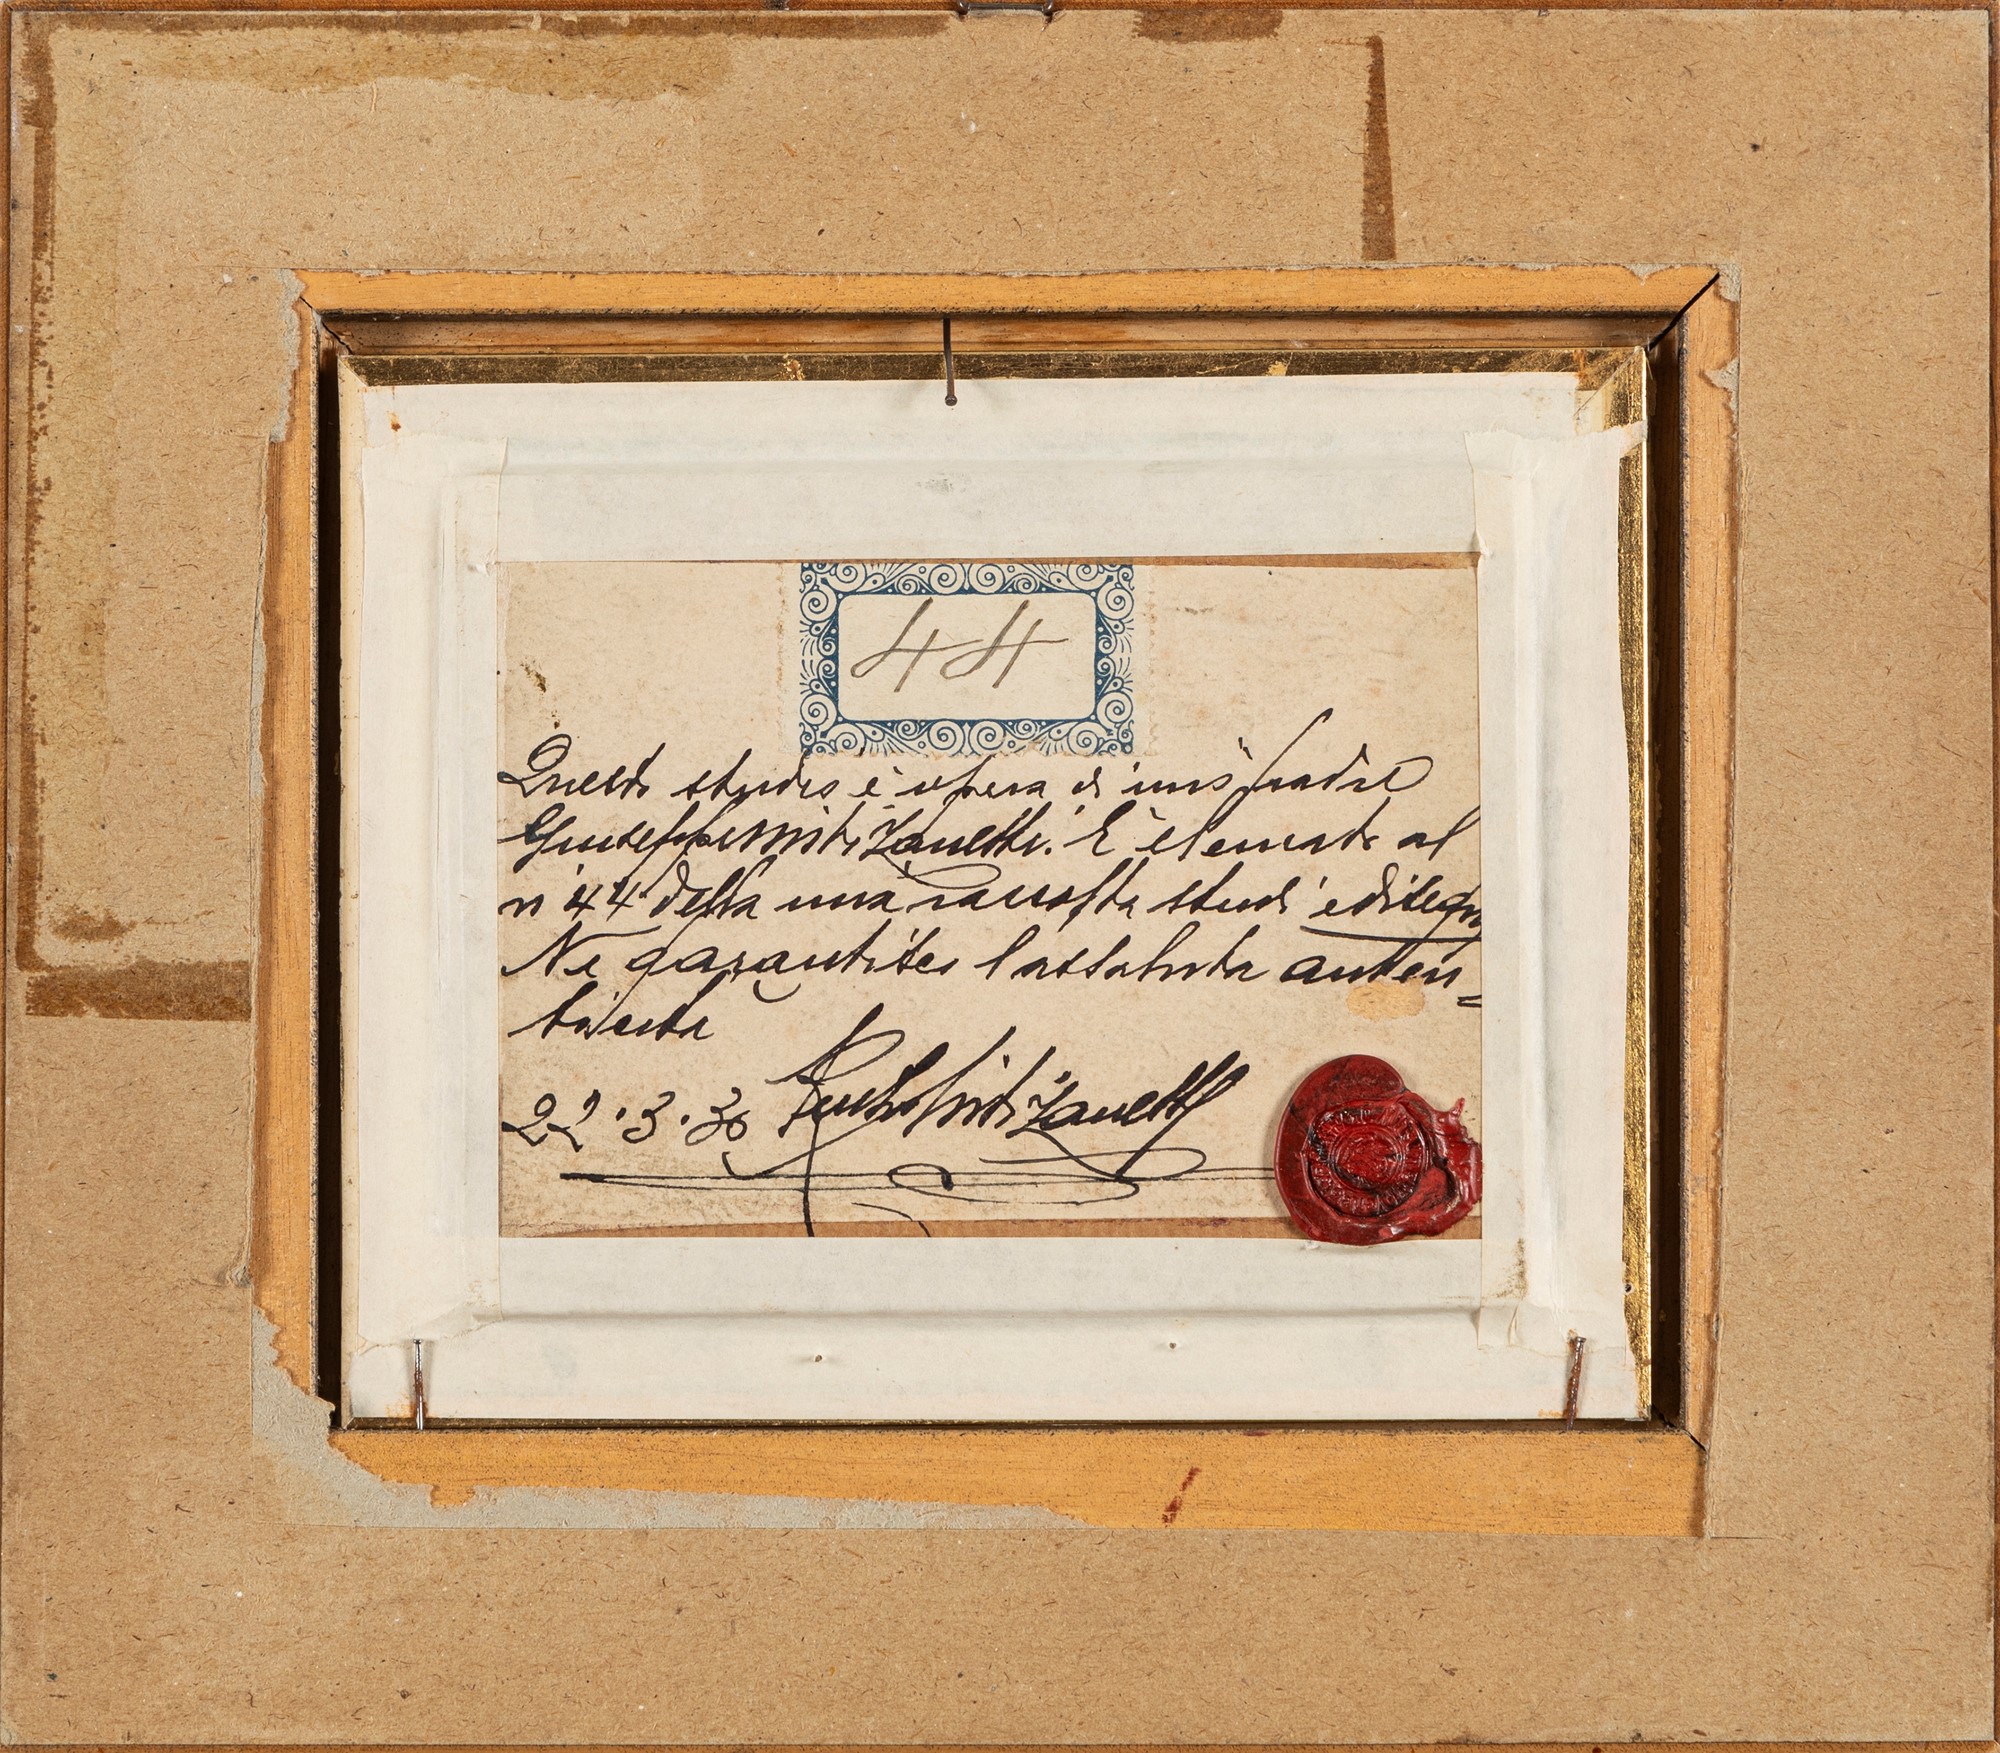 44
Questo studio è opera di mio padre
Giuseppe Miti Zanetti. È elencato al
n° 44 della mia raccolta studi e disegni
Ne garantisco l'assoluta auten=
ticità
22.3.30 Miti Zanetti